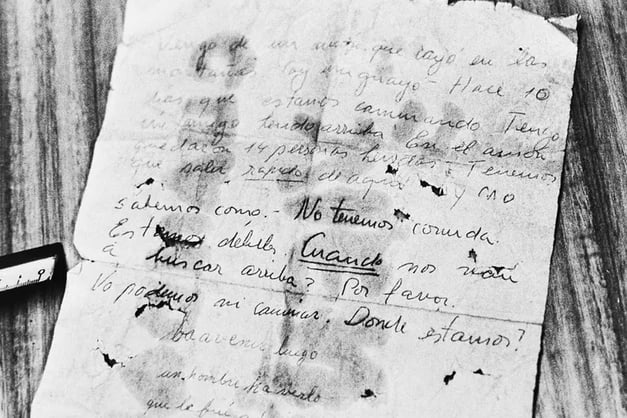 Vengo de un avión que cayó en las
montañas Soy uruguayo - Hace 10
dias que estamos caminando Tengo
un amigo herido arriba. En el avión
quedaron 14 personas heridas. Tenemos
que salir rapido de aqui y no
sabemos como.- No tenemos comida.
Estamos debiles. Cuando nos van
a buscar arriba? Por favor.
No podemos ni caminar. Donde estamos?
va a venir luego
un hombre a verlo
que le fui a